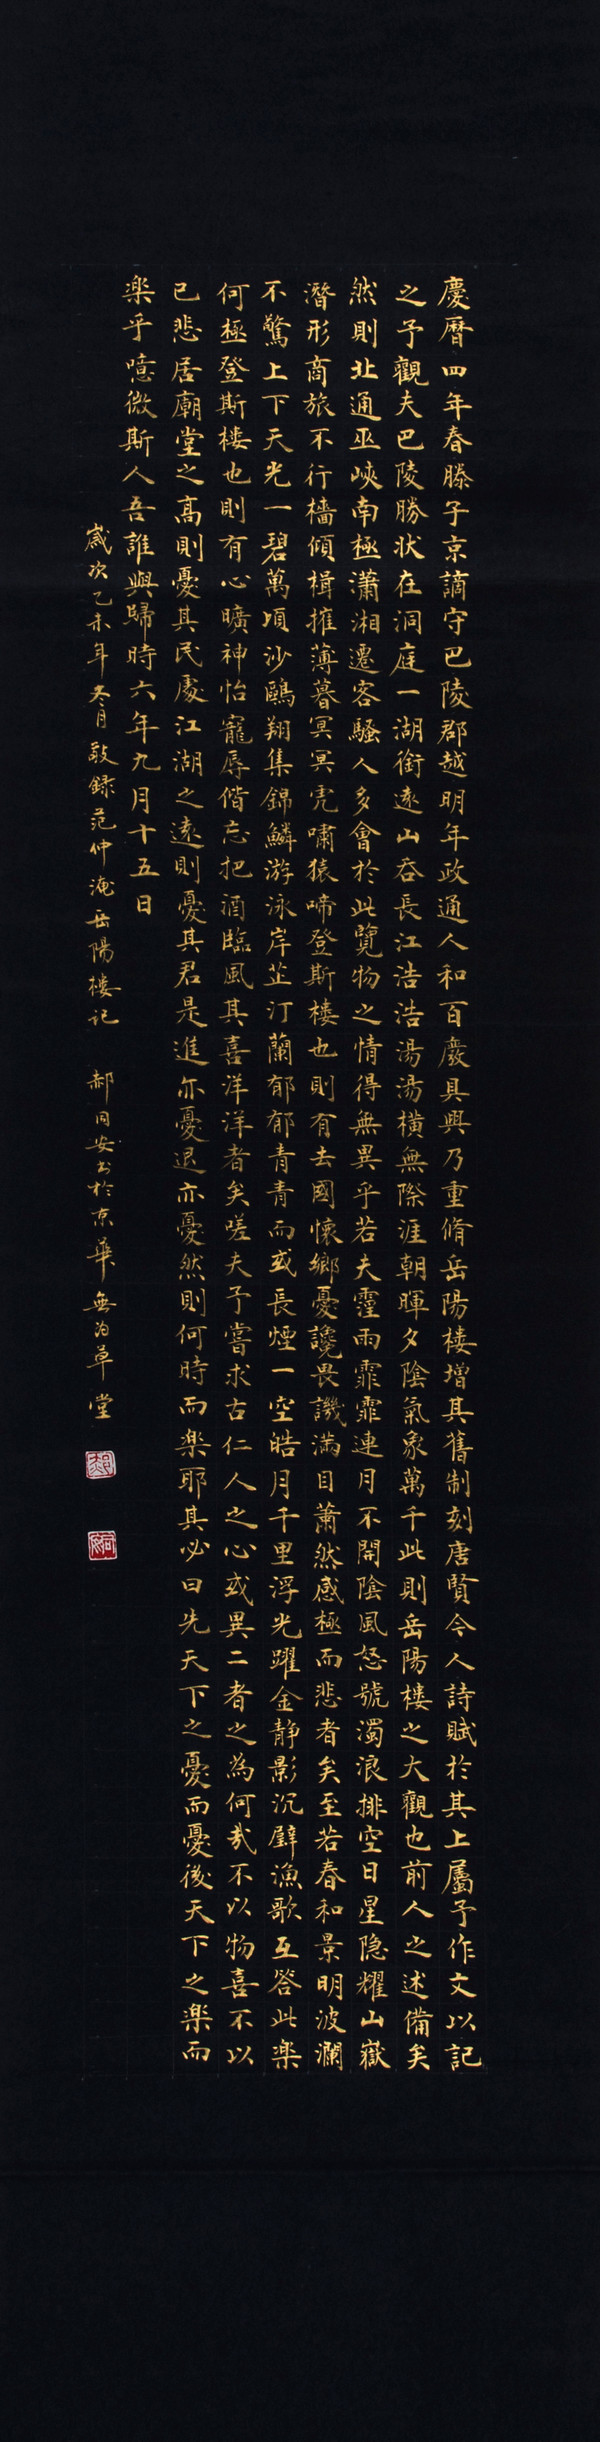 慶曆四年春滕子京謫守巴陵郡越明年政通人和百廢具興乃重脩岳陽楼增其舊制刻唐賢今人詩賦於其上屬予作文以記
之予觀夫巴陵勝狀在洞庭一湖銜遠山吞長江浩浩湯湯横無際涯朝暉夕陰氣象萬千此則岳陽楼之大觀也前人之述備矣
然則北通巫峽南極瀟湘遷客騷人多會於此覽物之情得無異乎若夫霪雨霏霏連月不開陰風怒號濁浪排空日星隐耀山嶽
潛形商旅不行檣傾楫摧薄暮冥冥虎嘯猿啼登斯楼也則有去國懷鄉憂讒畏譏滿目蕭然感極而悲者矣至若春和景明波瀾
不驚上下天光一碧萬頃沙鷗翔集錦鱗游泳岸芷汀蘭郁郁青青而或長煙一空皓月千里浮光躍金静影沉璧漁歌互答此楽
何極登斯楼也則有心曠神怡寵辱偕忘把酒臨風其喜洋洋者矣嗟夫予嘗求古仁人之心或異二者之為何哉不以物喜不以
己悲居廟堂之高則憂其民處江湖之遠則憂其君是進亦憂退亦憂然則何時而楽耶其必曰先天下之憂而憂後天下之楽而
楽乎噫微斯人吾誰與歸時六年九月十五日
歲次乙未年冬月敬錄范仲淹岳陽楼记 郝同安书於京華無为草堂
郝
同安